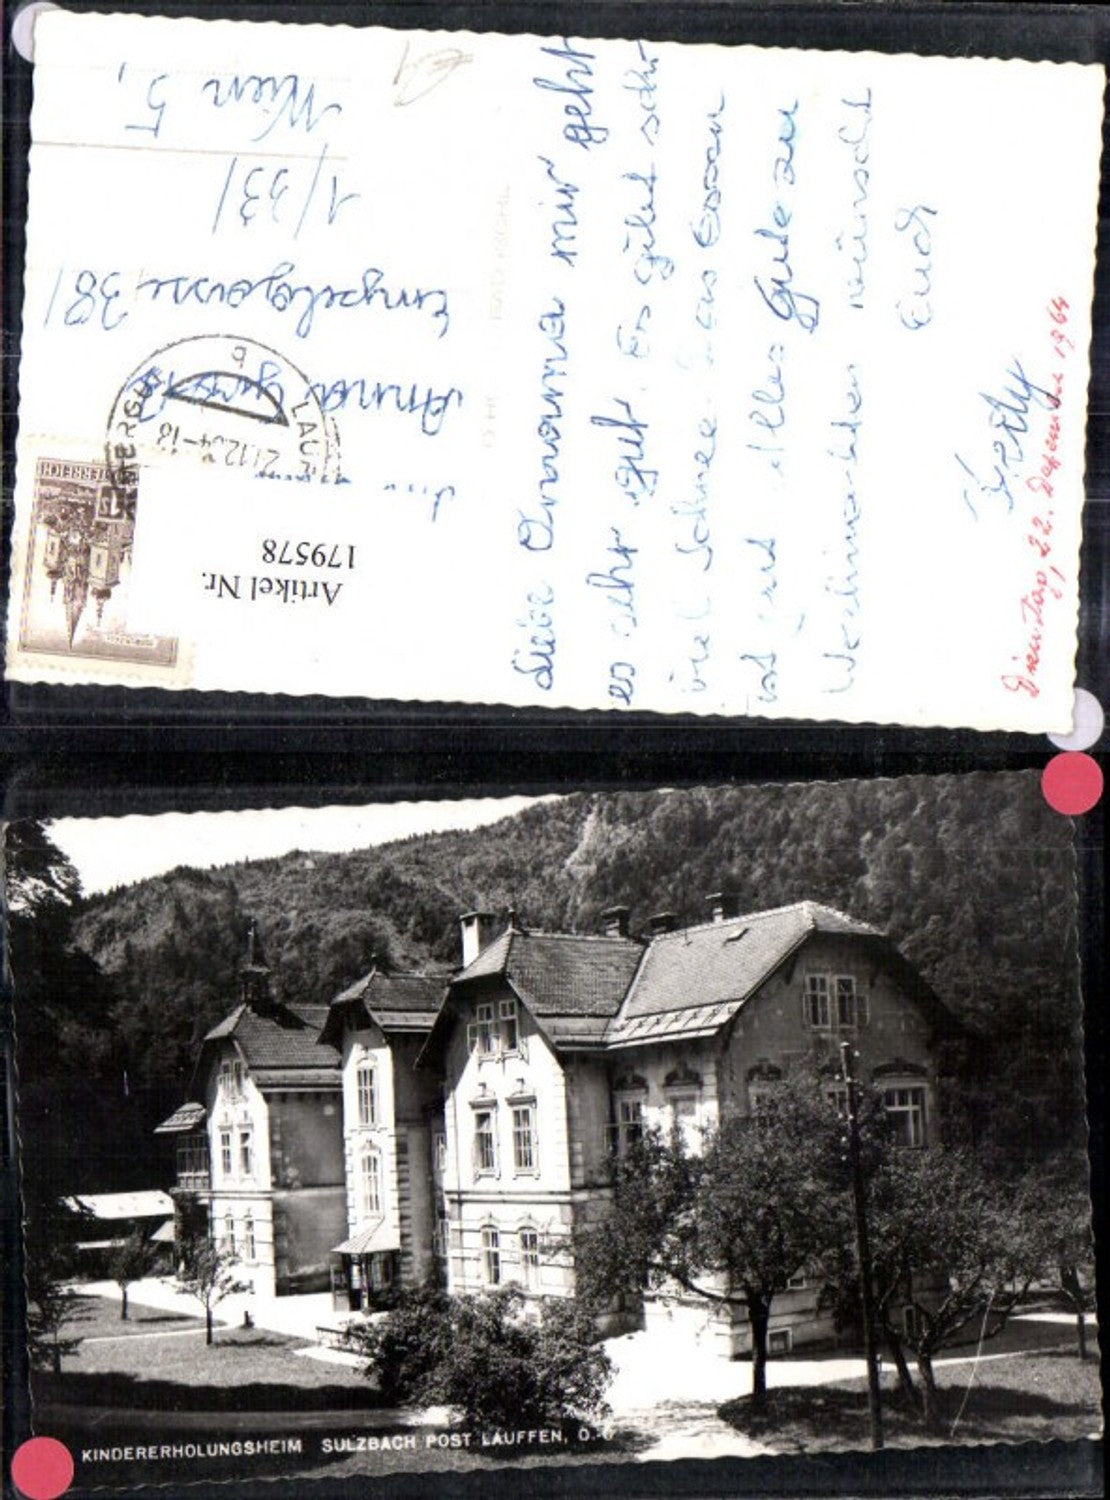 Liebe Omama mir geht
es sehr gut. Es gibt sehr
viel Schnee. Das Essen
ist gut. Alles Gute zu
Weihnachten wünscht
Euch
Dienstag, 22. Dezember 1964
Anna
Engelgasse 38/
1/33/
Wien 5,
LAUF
b
21.12.64-18
Artikel Nr.
179578
KINDERERHOLUNGSHEIM SULZBACH POST LAUFFEN, O.-Ö